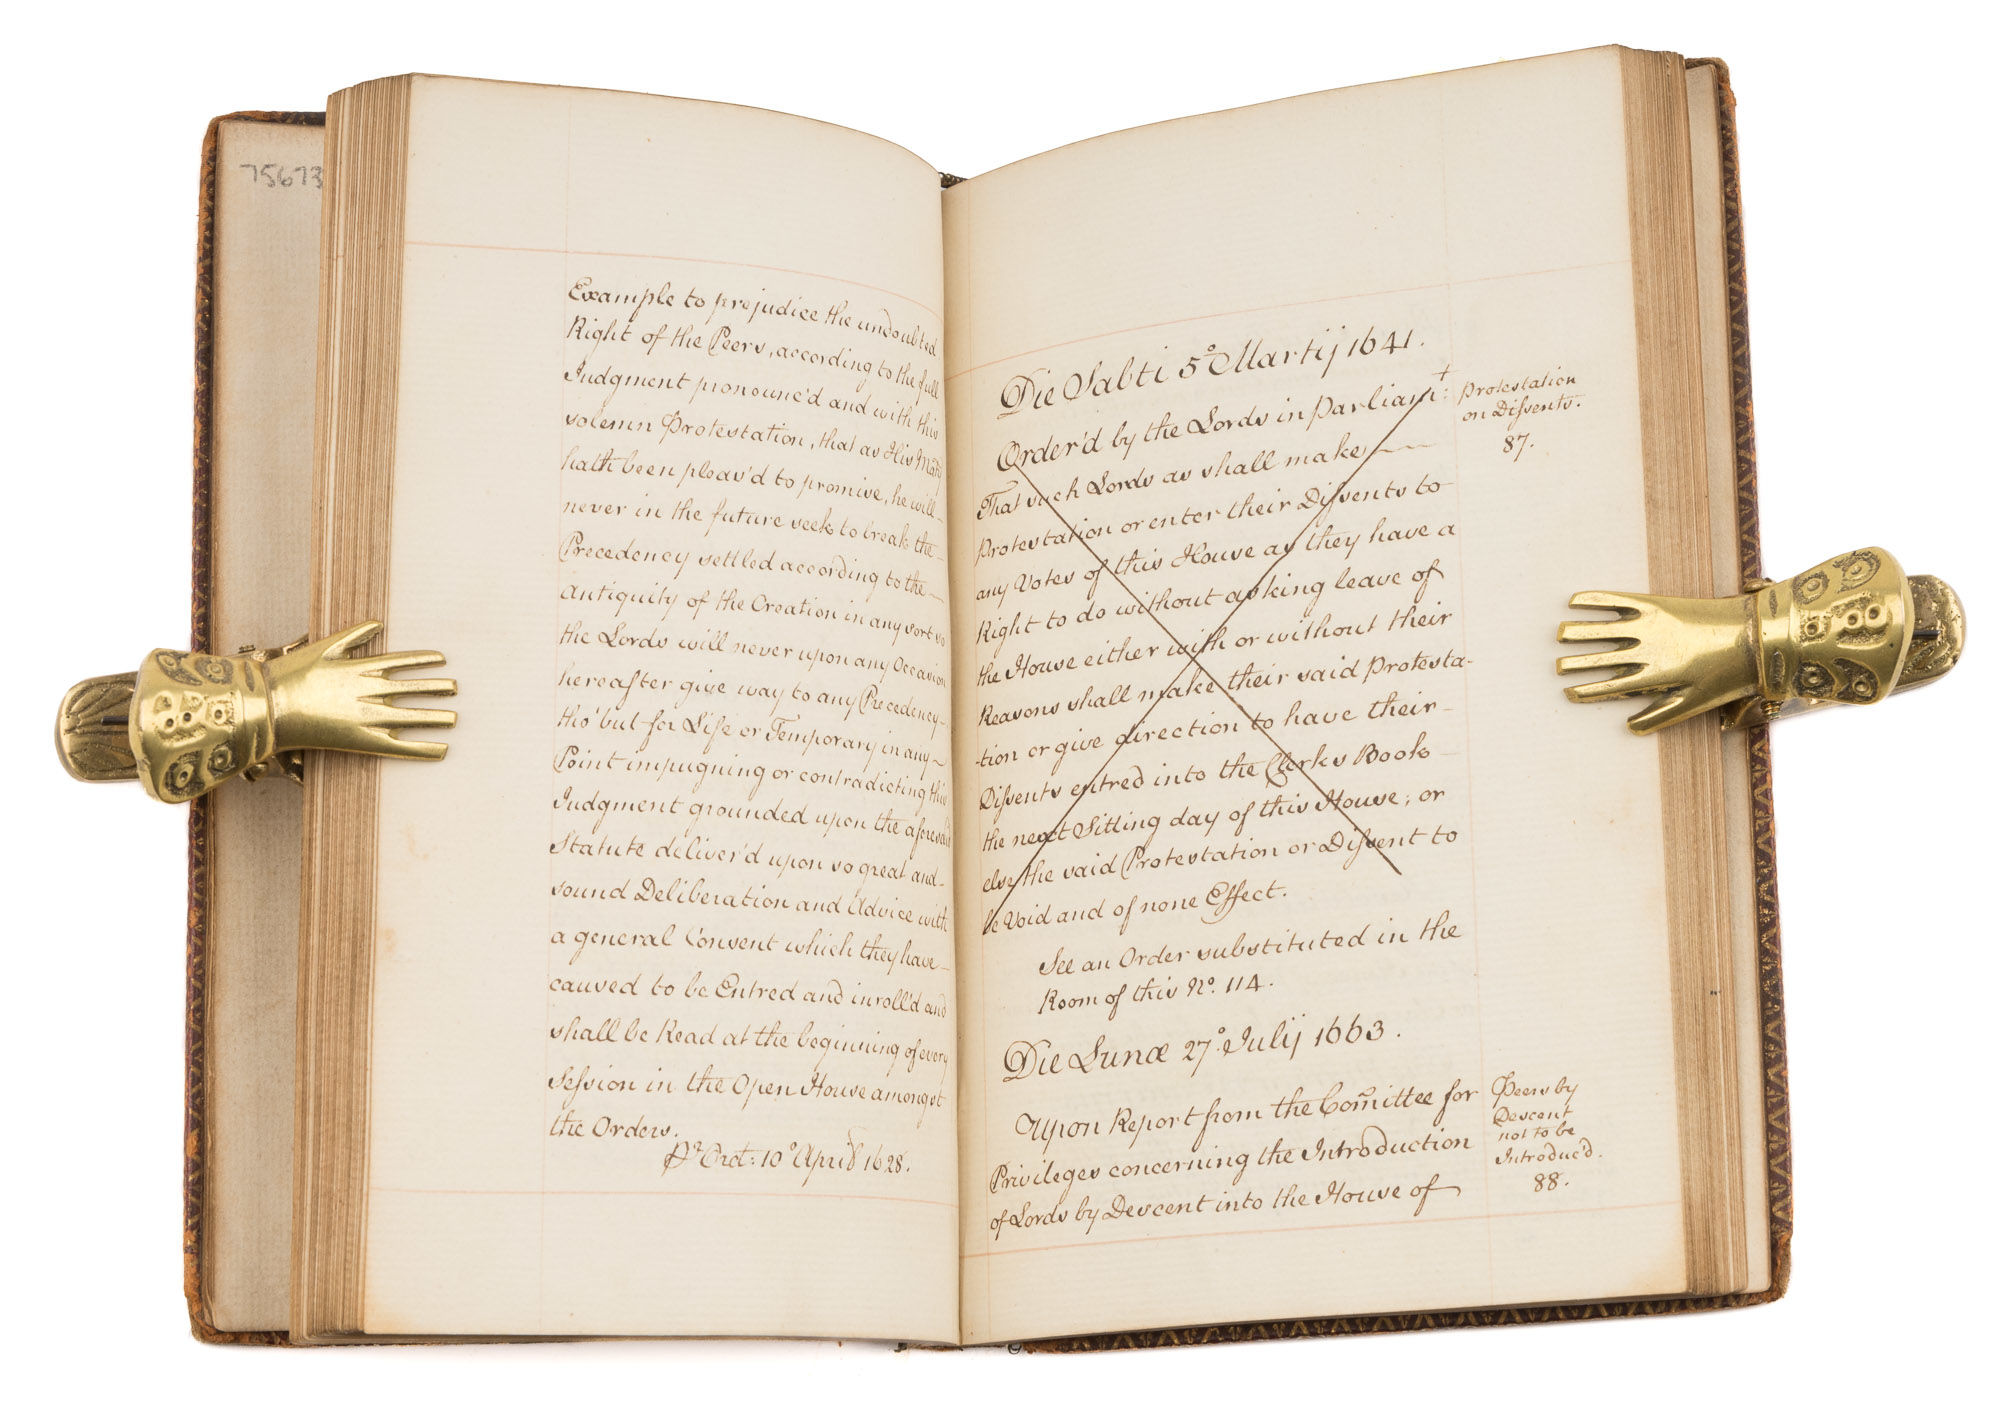 75673
Example to prejudice the undoubted
Right of the Peers, according to the full
Judgment pronounc'd and with this
solemn Protestation, that as His Maty
hath been pleas'd to promise, he will
never in the future seek to break the
Precedency settled according to the
antiquity of the Creation in any sort so
the Lords will never upon any Occasion
hereafter give way to any Precedency
tho' but for Life or Temporary in any
Point impugning or contradicting this
Judgment grounded upon the aforesaid
Statute deliver'd upon so great and
sound Deliberation and Advice with
a general Consent which they have
caused to be Entred and inroll'd and
shall be Read at the beginning of every
Session in the Open House amongst
the Orders.
Pr Ord: 10º April 1628.
Die Sabti 5º Martij 1641.
Order'd by the Lords in Parliamt: +
That such Lords as shall make
Protestation or enter their Dissents to
any Votes of this House as they have a
Right to do without asking leave of
the House either with or without their
Reasons shall make their said Protesta-
-tion or give direction to have their
Dissents entred into the Clerks Book
the next Sitting day of this House; or
else the said Protestation or Dissent to
be Void and of none Effect.
See an Order substituted in the
Room of this No. 114.
Protestation
on Dissents.
87.
Die Lunæ 27º Julij 1663.
Upon Report from the Com̃ittee for
Privileges concerning the Introduction
of Lords by Descent into the House of
Peers by
Descent
not to be
Introduc'd.
88.